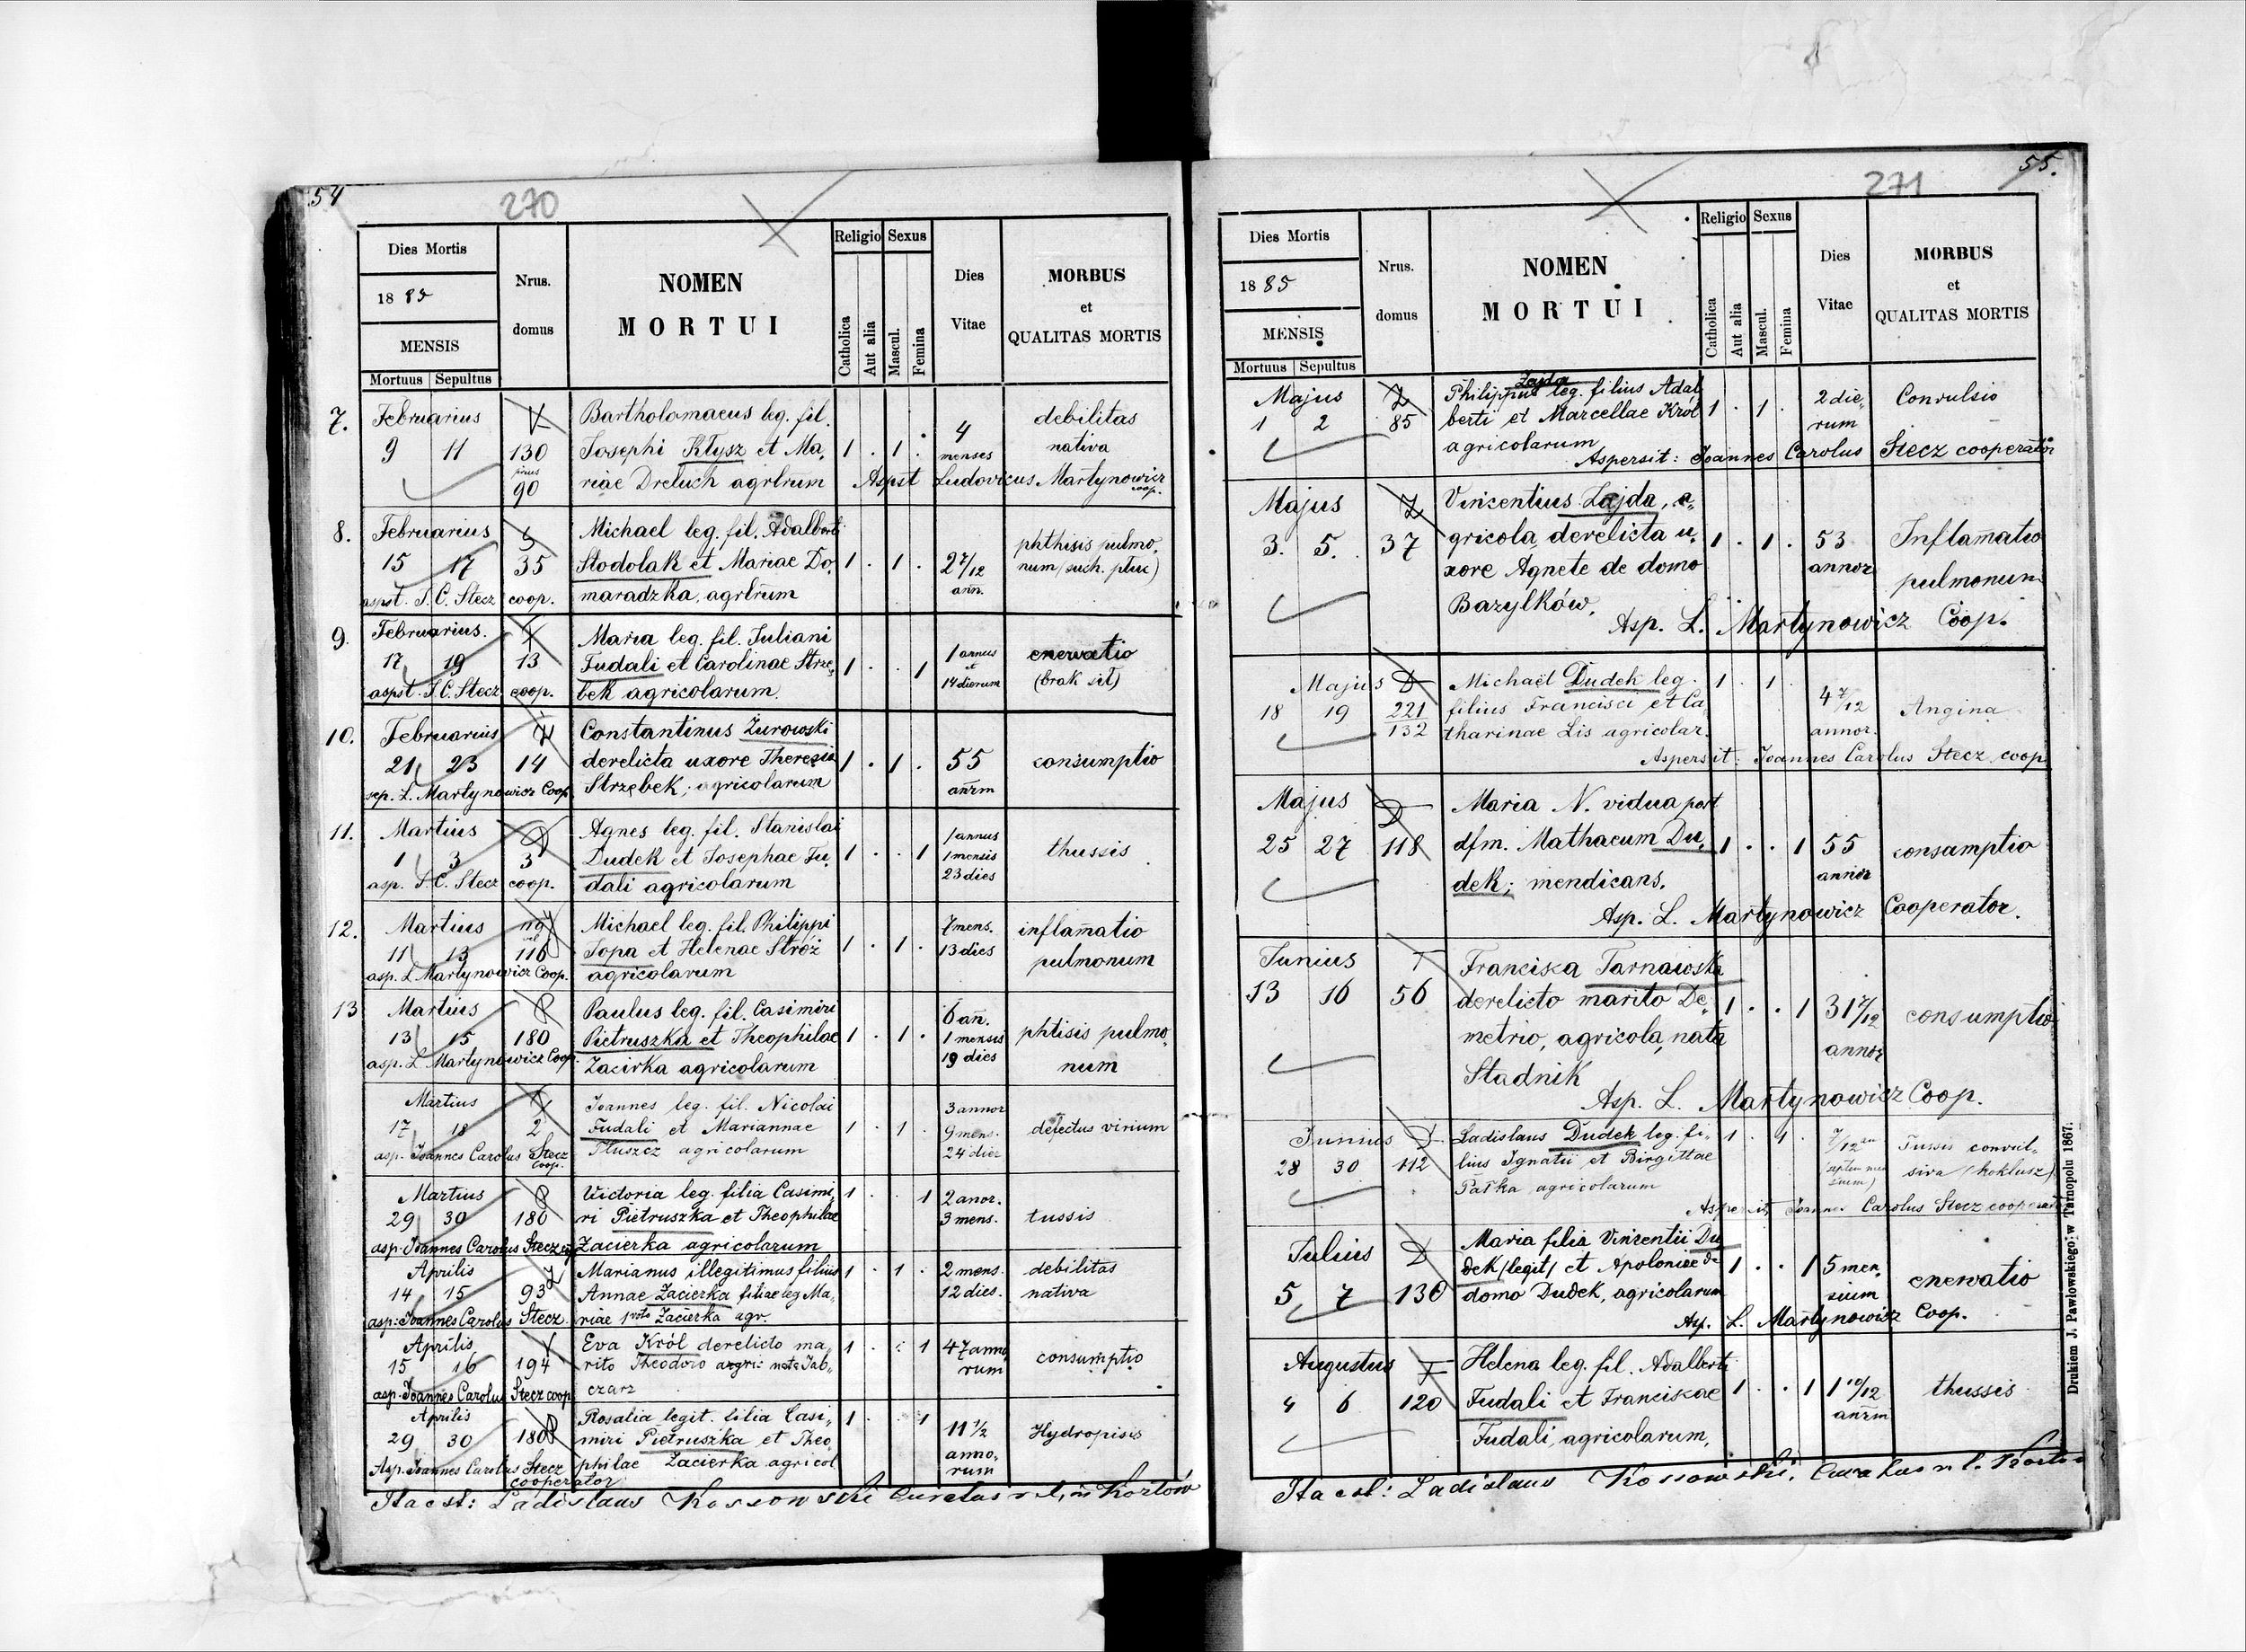 54
270
Dies Mortis
1885
MENSIS
Mortuus Sepultus
Nrus.
domus
NOMEN
MORTUI
Religio Sexus
Catholica
Aut alia
Mascul.
Femina
Dies
Vitae
MORBUS
et
QUALITAS MORTIS
7. Februarius Bartholomaeus leg. fil. debilitas
9 11 130 Josephi Kłysz et Ma, 1 . 1 . 4 menses nativa
90 riae Dreluch agrlrum Aspst Ludovicus Martynowicz coop.
8. Februarius Michael leg. fil. Adalberti phthisis pulmo,
15 17 35 Stodolak et Mariae Do, 1 . 1 . 2 7/12 num (such. płuc)
aspst. J. C. Stecz coop. maradzka, agrlrum ann.
9. Februarius. Maria leg. fil. Juliani 1 annus enervatio
17 19 13 Fudali et Carolinae Strzę, 1 . . 1 et (brak sił)
aspst. J. C. Stecz coop. bek agricolarum. 14 dierum
10. Februarius Constantinus Żurowski
21 23 14 derelicta uxore Theresia 1 . 1 . 55 consumptio
sep. L. Martynowicz Coop. Strzębek; agricolarum añrm
11. Martius Agnes leg. fil. Stanislai 1 annus
1 3 3 Dudek et Josephae Fu, 1 . . 1 1 mensis thussis
asp. J. C. Stecz coop. dali agricolarum 23 dies
12. Martius Michael leg. fil. Philippi 7 mens. inflam̄atio
11 13 116 Topa et Helenae Stróż 1 . 1 . 13 dies pulmonum
asp. L Martynowicz Coop. agricolarum
13 Martius Paulus leg. fil. Casimiri 6 añ.
13 15 180 Pietruszka et Theophilae 1 . 1 . 1 mensis phtisis pulmo,
asp. L Martynowicz Coop. Zacirka agricolarum 19 dies num
Martius Joannes leg. fil. Nicolai 3 annor
17 18 2 Fudali et Mariannae 1 . 1 . 9 mens. defectus virium
asp. Joannes Carolus Stecz Coop. Tłuszcz agricolarum 24 dier
Martius Victoria leg. filia Casimi, 1 . . 1 2 anor.
29 30 180 ri Pietruszka et Theophilae 3 mens. tussis
asp. Joannes Carolus Stecz Zacierka agricolarum
Aprilis Marianus illegitimus filius 1 . 1 . 2 mens. debilitas
14 15 93 Annae Zacierka filiae leg Ma, 12 dies. nativa
asp: Joannes Carolus Stecz. riae 1 voto Zacierka agr.
Aprilis Eva Król derelicto ma, 1 . . 1 47 anno
15 16 194 rito Theodoro nata Jab, rum consumptio
asp. Joannes Carolus Stecz coop czarz
Aprilis Rosalia legit. filia Casi, 1 . . 1
29 30 180 miri Pietruszka et Theo 11 1/2 Hydropisis
Asp. Joannes Carolus Stecz philae Zacierka agricol anno,
cooperator rum
Ita est: Ladislaus Kossowski Curatus
55.
271
Dies Mortis
1885
MENSIS
Mortuus Sepultus
Nrus.
domus
NOMEN
MORTUI
Religio Sexus
Catholica
Aut alia
Mascul.
Femina
Dies
Vitae
MORBUS
et
QUALITAS MORTIS
Zajda
Majus Philippus leg. filius Adal, 2 die, Convulsio
1 2 85 berti et Marcellae Król 1 . 1 . rum
agricolarum
Aspersit: Joannes Carolus Stecz cooperator
Majus Vincentius Zajda, a,
3. 5. 37 gricola, derelicta u, 1 . 1 . 53 Inflam̄atio
xore Agnete de domo annor pulmonum
Bazylków.
Asp. L. Martynowicz Coop.
Majus Michaël Dudek leg. 1 . 1 .
18 19 221 filius Francisci et Ca, 4 7/12 Angina
132 tharinae Lis agricolar. annor.
Aspersit: Joannes Carolus Stecz coop
Majus Maria N. vidua post
25 27 118 dfm. Mathaeum Du, 1 . . 1 55 consumptio
dek; mendicans. annor
Asp. L. Martynowicz Cooperator.
Junius Francisca Tarnawska
13 16 56 derelicto marito De, 1 . . 1 31 7/12 consumptio
metrio, agricola, nata annor
Stadnik
Asp. L. Martynowicz Coop.
Junius Ladislaus Dudek leg. fi, 1 . 1 . 7/12 an Tussis convul,
28 30 112 lius Ignatii et Birgittae siva (koklusz)
Pałka agricolarum
Aspersit Joannes Carolus Stecz cooperator
Julius Maria filia Vincentii Du
5 7 130 dek (legit) et Apoloniae de 1 . . 1 5 men, enervatio
domo Dudek, agricolarum sium
Asp. L. Martynowicz Coop.
Augustus Helena leg. fil. Adalberti
4 6 120 Fudali et Franciscae 1 . . 1 1 10/12 thussis
Fudali, agricolarum, añrm
Ita est: Ladislaus Kossowski, Curatus
Drukiem J. Pawłowskiego w Tarnopolu 1867.